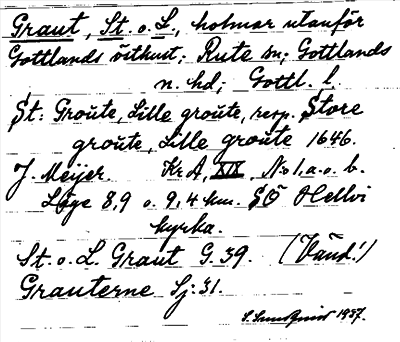 Graut, St. o. L., holmar utanför
Gottlands östkust; Rute sn; Gottlands
n. hd; Gottl. l.
St: Groūte, Lille groūte, resp. Store
groūte, Lille groūte 1646.
J. Meijer Kr A, XIX, No 1, a. o. b.
Läge 8,9 o. 9,4 km. SÖ Hellvi
kyrka.
St. o. L. Graut G. 39. (Vänd!)
Grauterne Sj: 31.
S. Sundquist 1937.